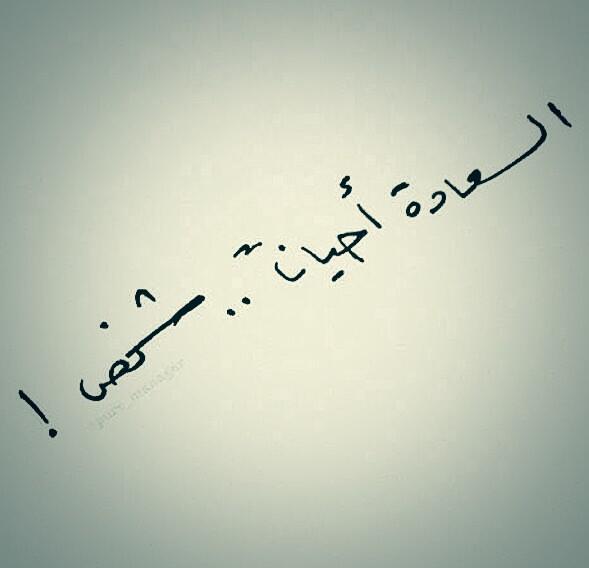 السعادة أحياناً .. شخص !
pure_manager